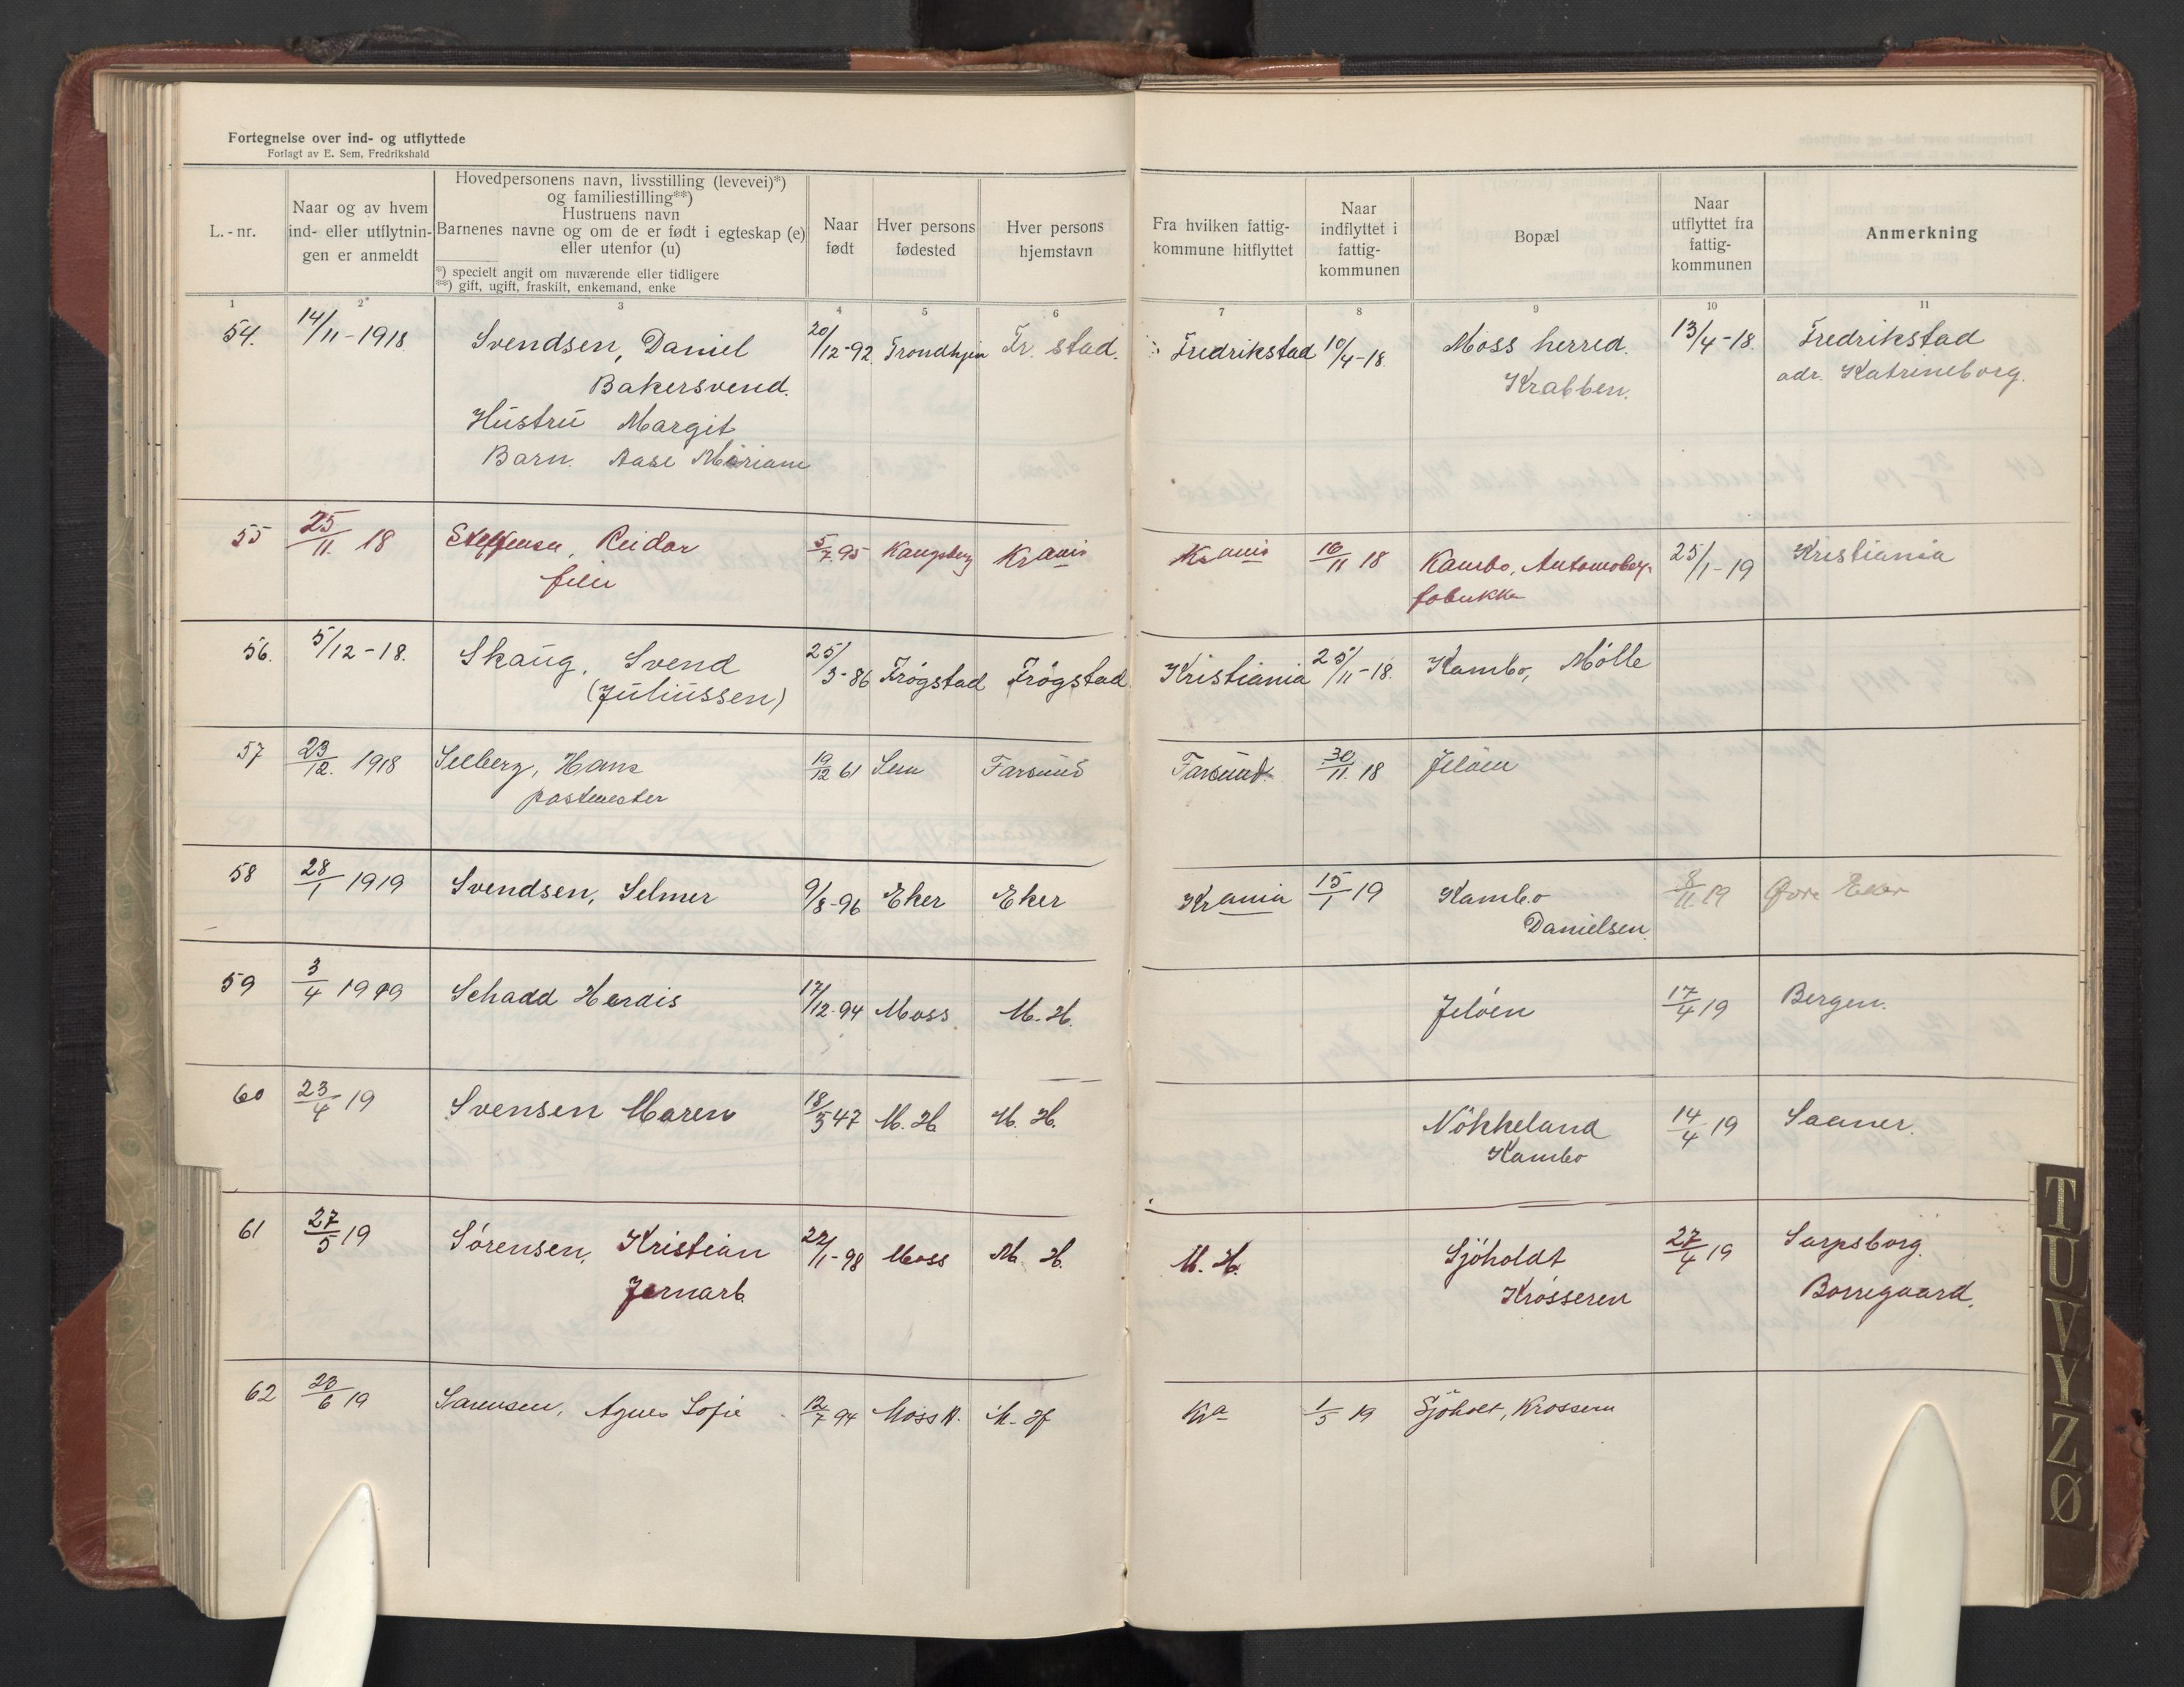 Fortegnelse over ind- og utflyttede
Forlagt av E. Sem, Fredrikshald
L.-nr.
Naar og av hvem
ind- eller utflytnin-
gen er anmeldt
Hovedpersonens navn, livsstilling (levevei)*)
og familiestilling**)
Hustruens navn
Barnenes navne og om de er født i egteskap (e)
eller utenfor (u)
*) specielt angit om nuværende eller tidligere
**) gift, ugift, fraskilt, enkemand, enke
Naar
født
Hver persons
fødested
Hver persons
hjemstavn
Fra hvilken fattig-
kommune hitflyttet
Naar
indflyttet i
fattig-
kommunen
Bopæl
Naar
utflyttet fra
fattig-
kommunen
Anmerkning
1 2 3 4 5 6 7 8 9 10 11
54. 14/11-1918 Svendsen, Daniel 20/12-92 Trondhjem Fr. stad. Fredrikstad 10/4-18. Moss herred. 13/4-18. Fredrikstad
Bakersvend. Krabben. adr. Katrineborg.
Hustru Margit
Barn. Aase Miriam
55 25/11 18 Steffensen, Reidar 5/7 95 Kongsberg Kr ania Kr ania 16/11 18 Kambo, Automobil- 25/1-19 Kristiania
filer fabrikk
56. 5/12-18. Skaug, Svend 25/3-86 Trøgstad Trøgstad Kristiania 25/11-18. Kambo, Mølle
(Juliussen)
57 23/12. 1918 Seeberg, Hans 19/12 61 Sem Farsund Farsund. 30/11. 18 Jeløen
postmester
58 28/1 1919 Svendsen, Selmer 9/8-96 Eker Eker Kr ania 15/1 19 Kambo 8/11 19 Øvre Eker
Danielsen.
59 3/4 1919 Schadd Herdis 17/12-94 Moss. M. H. Jeløen 17/4 19 Bergen.
60 23/4 19 Svensen Maren 18/5 47 M. H. M. H. Nökkeland 14/4 19 Saaner.
Kambo
61 27/5 19 Sörensen, Kristian 22/1-98 Moss M. H. M. H. Sjöholdt 27/4 19 Sarpsborg.
Jernarb. Krösseren Borregaard.
62 23/6 19 Sørensen, Agnes Sofie 12/7 94 Moss H. M. H Kr a 1/5 19 Sjöholt, Krosseren
T
U
V
Y
Z
Ø